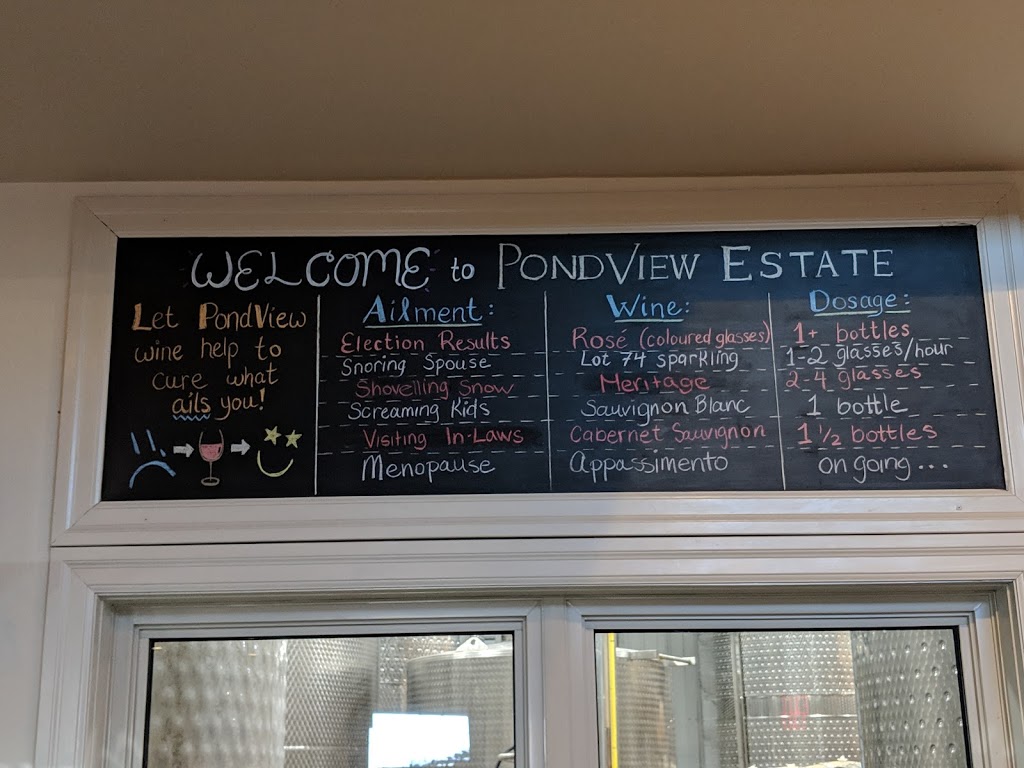 WELCOME to PONDVIEW ESTATE
Let PondView
wine help to
cure what
ails you!
Ailment: Wine: Dosage:
Election Results Rosé (coloured glasses) 1+ bottles
Snoring Spouse Lot 74 sparkling 1-2 glasses/hour
Shovelling Snow Meritage 2-4 glasses
Screaming Kids Sauvignon Blanc 1 bottle
Visiting In-Laws Cabernet Sauvignon 1 1/2 bottles
Menopause Appassimento on going...